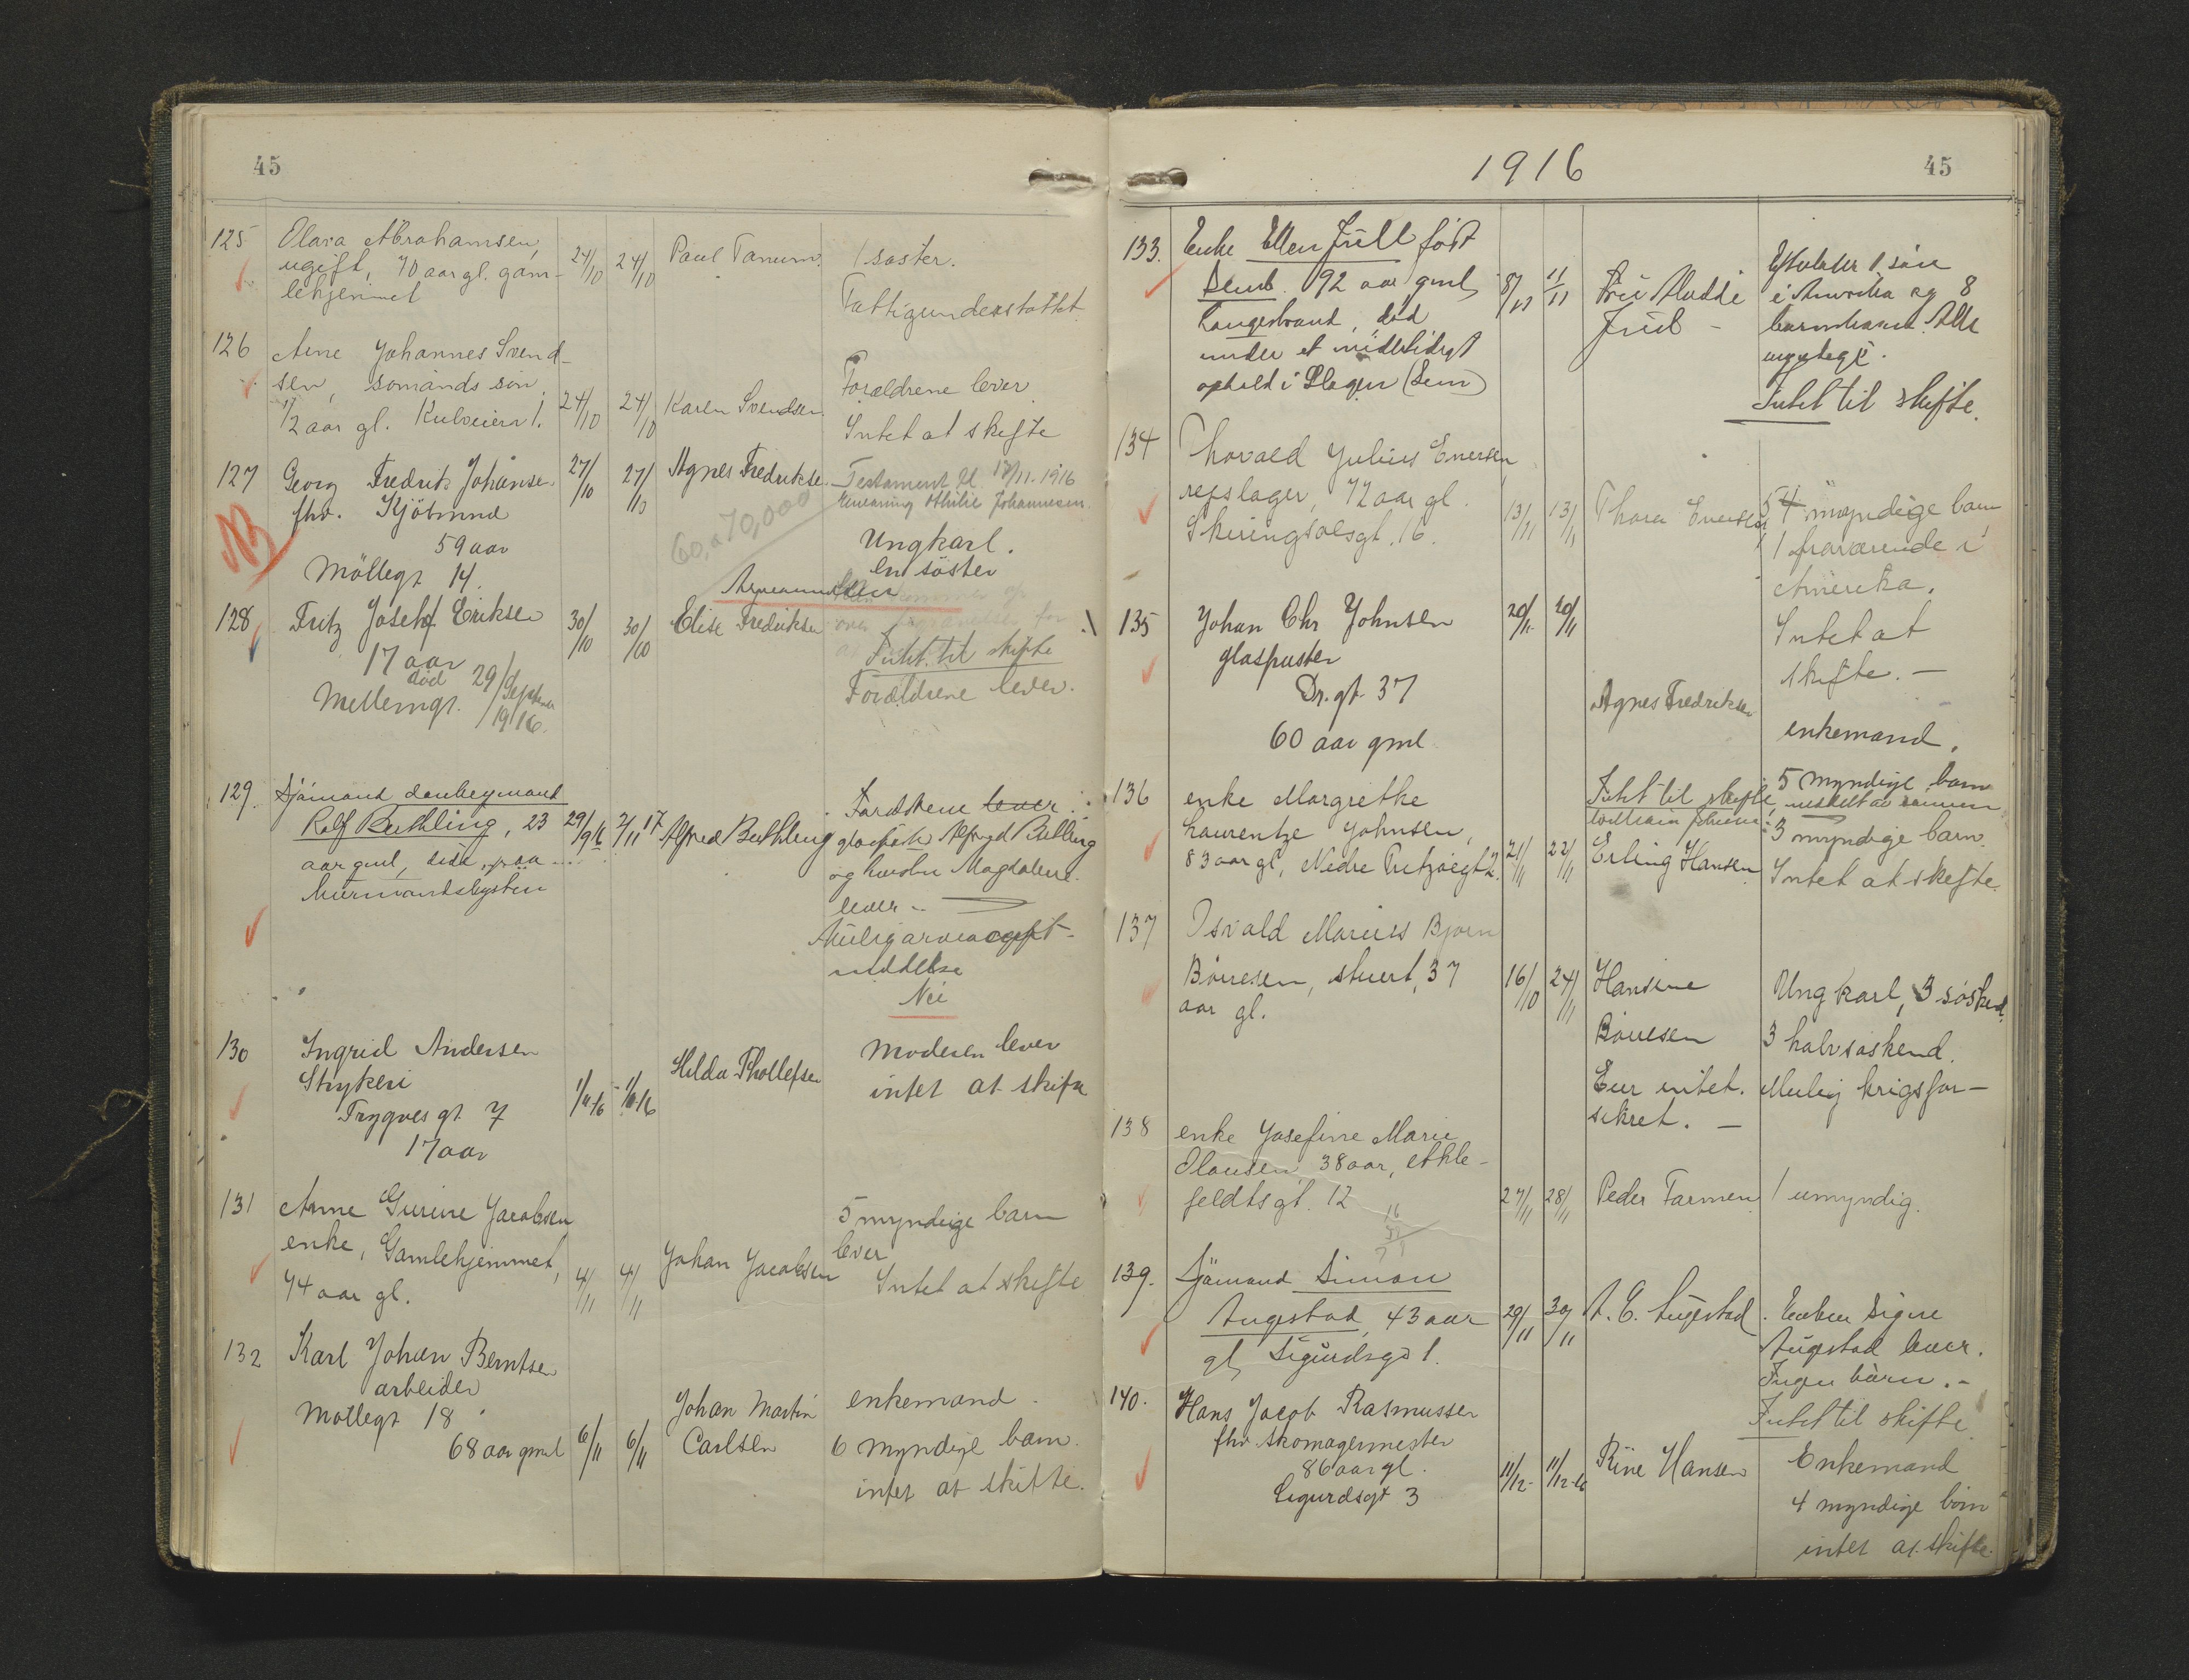 45
125 Olava Abrahamsen,
ugift, 70 aar gl. gam- 24/10 24/10 Paul Tanum. 1 søster.
lehjemmet Fattigunderstøttet
126 Arne Johannes Svend-
sen, sømands søn, Forældrene lever.
1/2 aar gl. 1. 24/10 24/10 Karen Svendsen. Intet at skifte
127 Georg Fredrik Johanse. 27/10 27/10 Agnes Fredrikse. Testament 17/11. 1916
fhv. Kjöbmand Othilie Johannesen.
NB 60, a 70,000
59 aar Ungkarl.
Möllegt 14. en söster
128 Fritz Josef Erikse 30/10 30/10 Elise Fredrikse
17 aar Intet til skifte
død 29/September 1916.
Mellemgt. Forældrene lever.
129. Sjömand
Rolf Buthling, 23 29/9 16 2/11 17 Alfred Buthling Forældrene lever.
aar gml, død paa og Magdalene
lever
Mulig
Nei
130 Ingrid Andersen Moderen lever
Strykeri 1/11-16 1/11-16 Hilda Thollefse intet at skifte
Trygvesgt 7
17 aar
131 Anne Gurine Jacobsen 5 myndige barn
enke, Gamlehjemmet, 4/11 4/11 Johan Jacobsen lever
74 aar gl. Intet at skifte
132 Karl Johan Berntse
arbeider
Möllegt 18 Johan Martin enkemand
68 aar gmel 6/11 6/11 Carlsen 6 myndige barn.
intet at skifte.
1916 45
133. Enke Ellen Juell født
92 aar gml, 8/11 11/11 Fru Juel Efterlater 1 søn
Langestrand, død i Amerika og 8
under et midlertidigt barnebarn. Alle
ophold i Slagen (Sem) myndige.
Intet til skifte.
134 Thovald Julius Evensen
repslager, 72 aar gl. 13/11 13/11 Thora Evensen 5 4 myndige barn
Skiringsalsgt. 16. 1 fraværende i
Amerika.
Intet at
skifte. -
135 Johan Chr Johnsen 20/11 20/11
glaspuster
Dr. gt. 37 Agnes Fredrikse
60 aar gml enkemand.
5 myndige barn
136 enke Margrethe Intet til skifte,
Laurentze Johnsen,
83 aar gl, Nedre 21/11 22/11 Erling Hansen 3 myndige barn.
Intet at skifte.
137 Osvald Marius Bjørn
Børresen, stuert, 37 16/10 24/11 Hansine Ungkarl, 3 søskend.
aar gl. Børresen 3 halvsøskend.
Eier intet. Mulig krigsfor-
sikret. -
138 enke Josefine Marie
Olausen 38 aar,
feldtsgt. 12 27/11 28/11 Peder Farmen 1 umyndig.
139. Sjömand Simon
Augestad, 43 aar 29/11 30/11 A. C. Augestad. Enken Signe
gl, Sigurdsgd 1. Augestad lever.
Ingen børn. -
Intet til skifte
140. Hans Jacob Rasmussen
fhv. skomagermester
86 aar gl. 11/12- 11/12-16 Rine Hansen Enkemand
Sigurdsgt 3 4 myndige börn
intet at skifte.